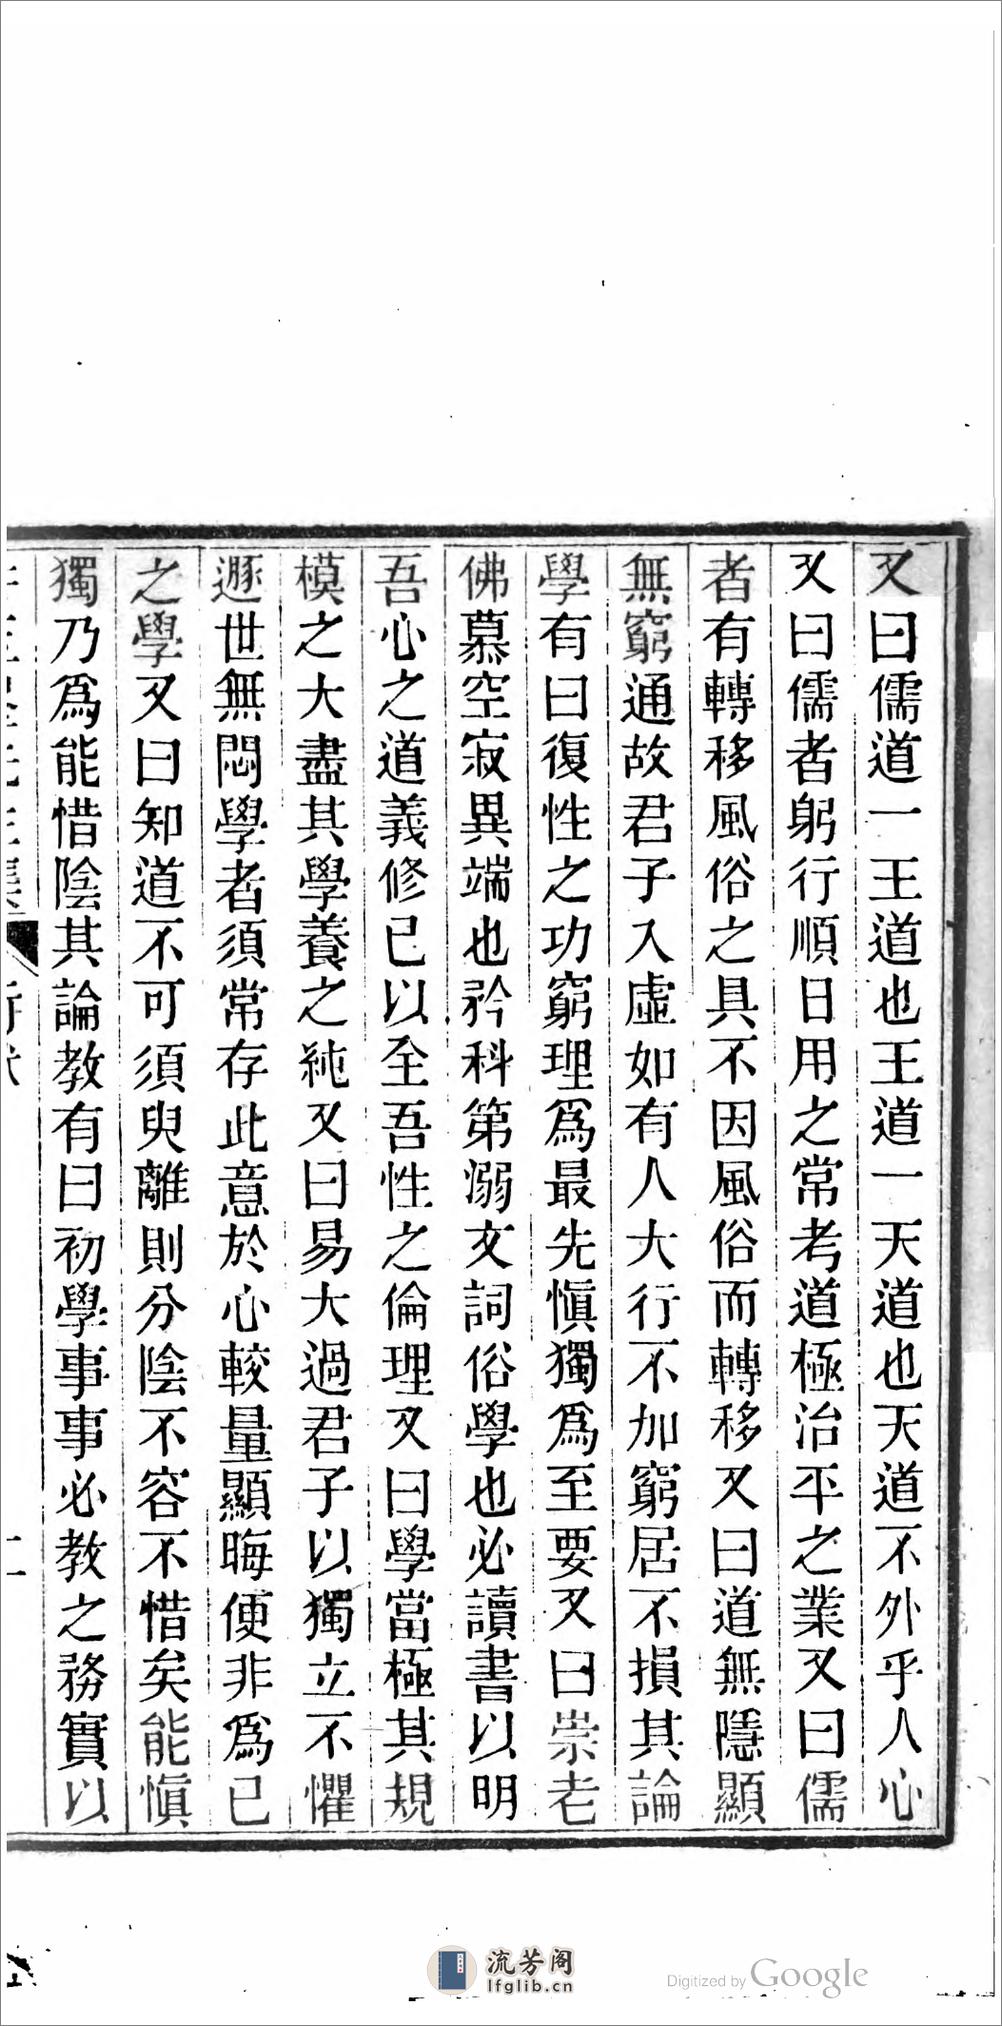 又曰儒道一王道也王道一天道也天道不外乎人心
又曰儒者躬行順日用之常考道極治平之業又曰儒
者有轉移風俗之具不因風俗而轉移又曰道無隱顯
無窮通故君子入虛如有人大行不加窮居不損其論
學有曰復性之功窮理爲最先愼獨爲至要又曰崇老
佛慕空寂異端也矜科第溺文詞俗學也必讀書以明
吾心之道義修已以全吾性之倫理又曰學當極其規
模之大盡其學養之純又曰易大過君子以獨立不懼
遯世無悶學者須常存此意於心較量顯晦便非爲已
之學又曰知道不可須臾離則分陰不容不惜矣能愼
獨乃爲能惜陰其論教有曰初學事事必教之務實以
流芳阁
lfglib.cn
Digitized by Google